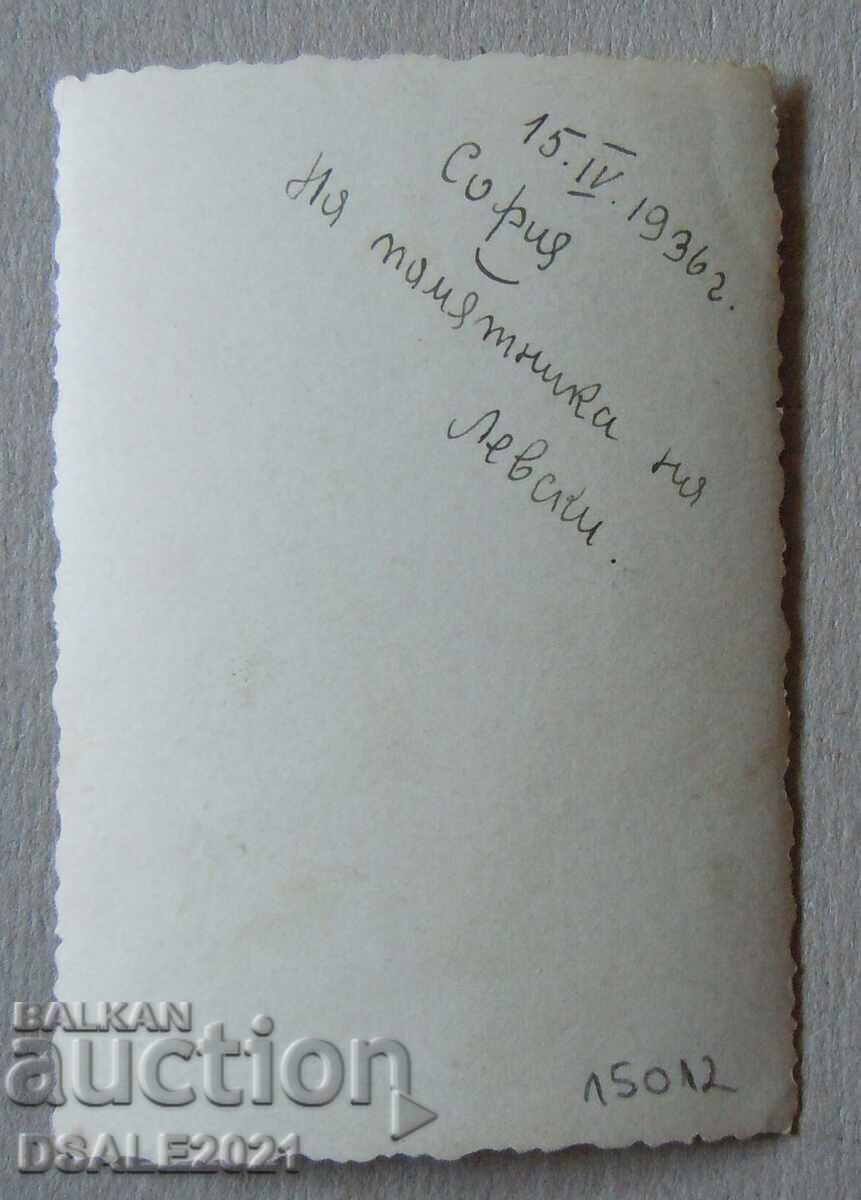 15.IV.1936г.
София
На паметника на
Левски.
15012
BALKAN
auction
DSALE2021